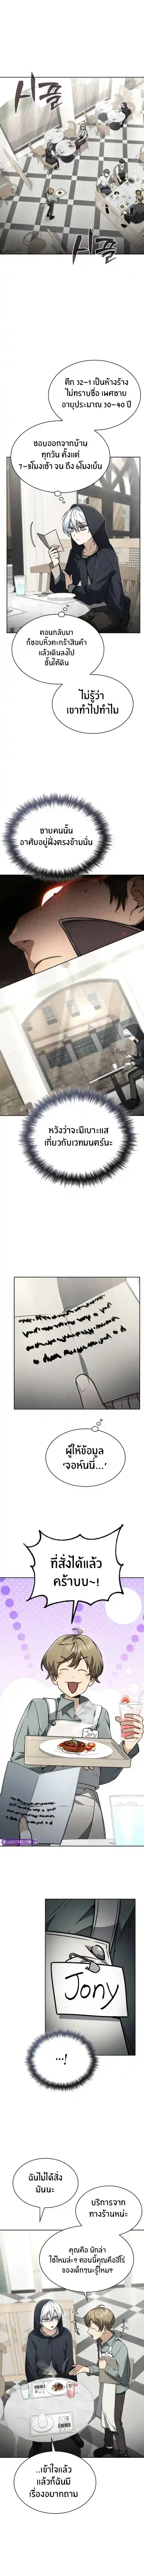 ซิ่พิ่
ซิ่พิ่
ตึก 32-1 เป็นห้างร้าง
ไม่ทราบชื่อ เพศชาย
อายุประมาณ 30-40 ปี
ชอบออกจากบ้าน
ทุกวัน ตั้งแต่
7-8โมงเช้า จน ถึง 6โมงเย็น
ตอนกลับมา
ก็ชอบหิ้วตะกร้าสินค้า
แล้วเดินลงไป
ชั้นใต้ดิน
ไม่รู้ว่า
เขาทำไปทำไม
ชายคนนั้น
อาศัยอยู่ฝั่งตรงข้ามนั่น
หวังว่าจะมีเบาะแส
เกี่ยวกับเวทมนตร์นะ
ผู้ให้ข้อมูล
'จอห์นนี่...'
ที่สั่งได้แล้ว
คร้าบบ~!
Jony
...!
ฉันไม่ได้สั่ง
มันนะ
บริการจาก
ทางร้านหน่ะ
คุณคือ นักล่า
ใช่ไหมล่ะ? ตอนนี้คุณคือฮีโร่
ของเด็กๆนะรู้ไหม?
..เข้าใจแล้ว
แล้วก็ฉันมี
เรื่องอยากถาม